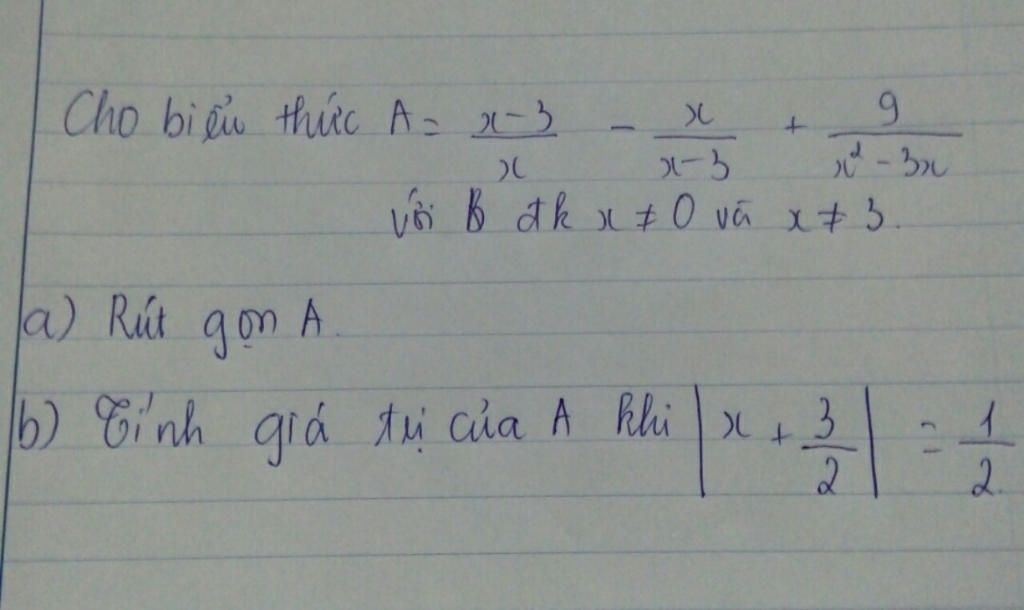 Cho biểu thức A = \frac{x-3}{x} - \frac{x}{x-3} + \frac{9}{x^2-3x}
với đk x ≠ 0 và x ≠ 3.
a) Rút gọn A.
b) Tính giá trị của A khi |x + \frac{3}{2}| = \frac{1}{2}.